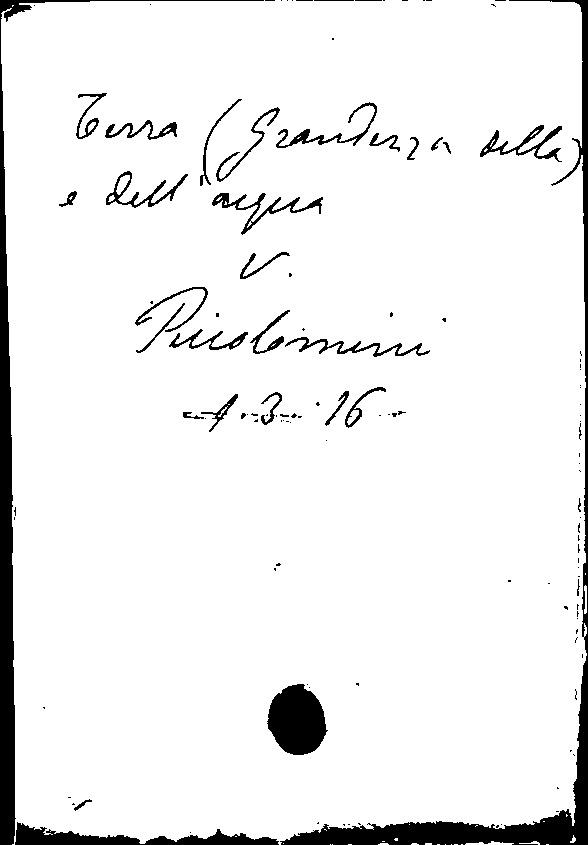 Terra (Grandezza della)
e dell'acqua
V.
Piccolomini
4.3.16